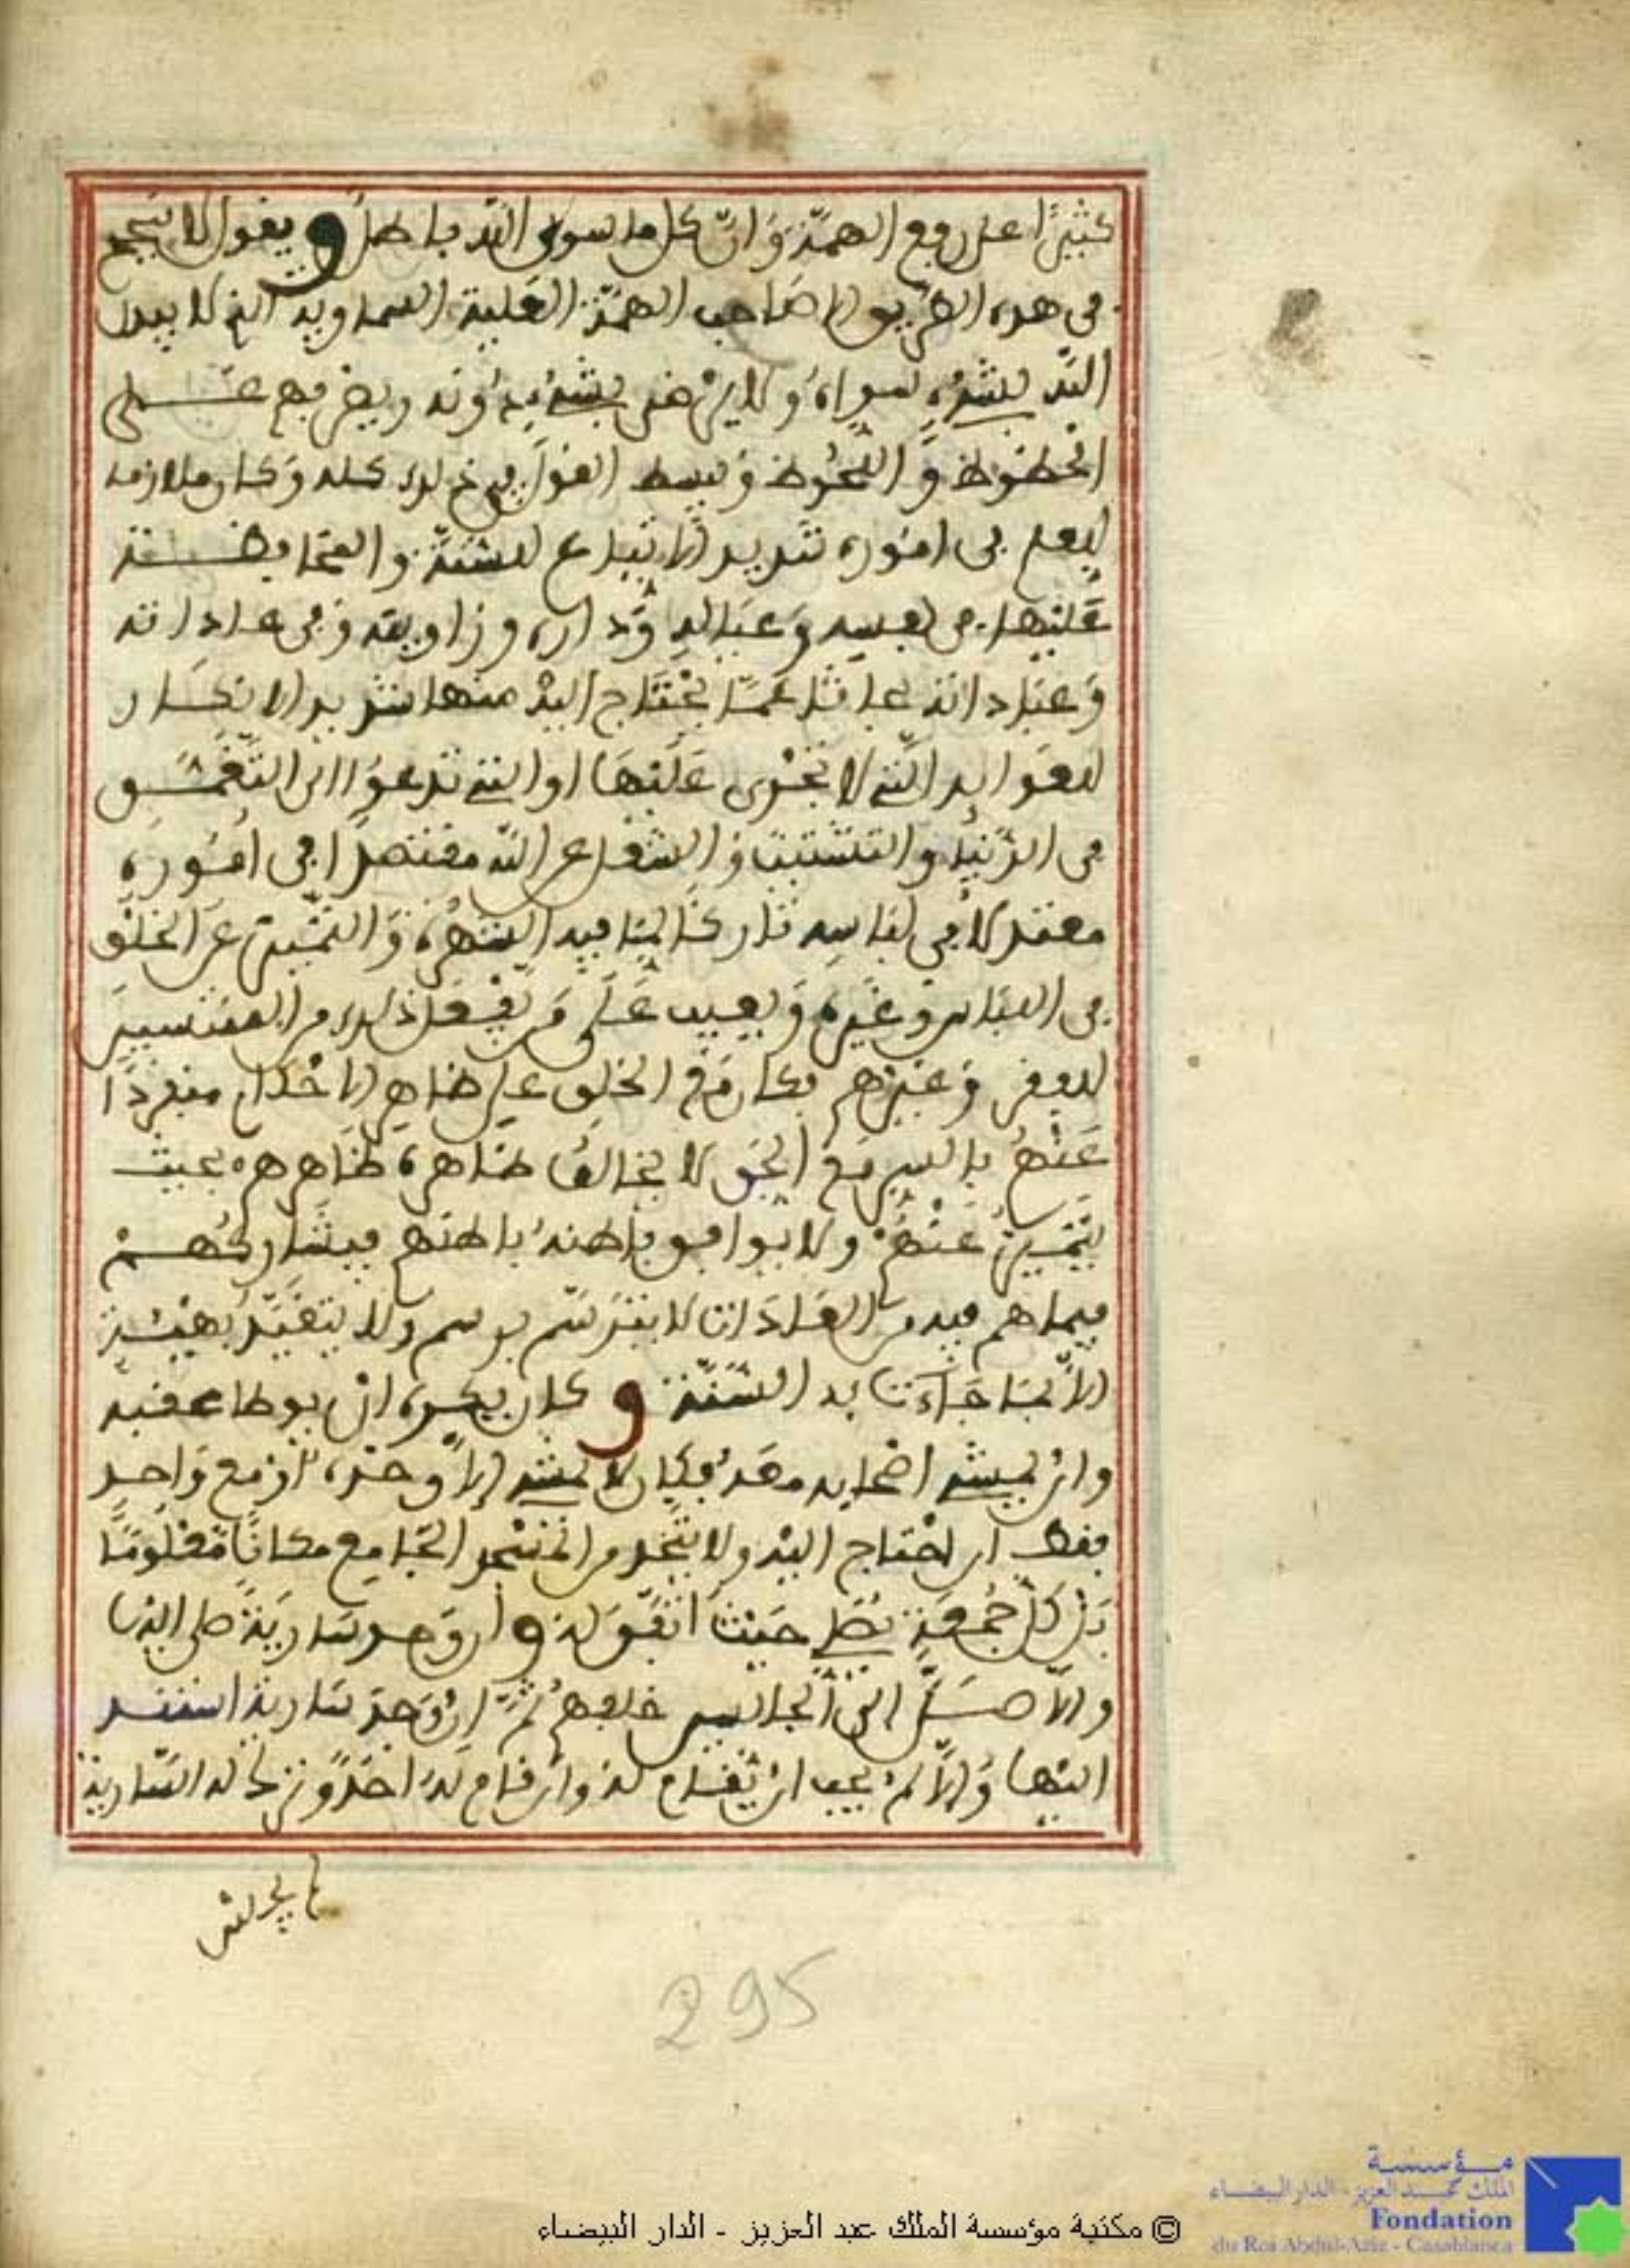 كثيرًا على رفع الهمّة وَانّ كل ما سوى اللّه باطلٌ ويقول لا ينجح
في هذه الطريق الا صَاحب الهمّة العَلية السماوية الذي لا يبدل
اللّه بشيْء سِواهُ وَلا يرْضى بشيْء دُونه ويضرب عـــلى
الحظوظ وَاللّحُوظ وَيبسط القوْل في ذلك كله وَكان ملازما
للعلم في امُوره شديد الاتباع للسُّنّة والمحَافظـــة
عَليْها في نفسِه وَعيَالِه وَداره وزاويته وَفي عاداته
وَعبَاداته باحثا عَمّا يحْتَاج اليْه منها شديد الانكَار
للعَوايد الّتي لا تجْرى عَليْهَا او التي تدعوُا الى التّعَمّــق
في الدّنيا والتشتيت وَالشغل عن اللّه مقتصدًا في امُوره
معتدلا في لبَاسِه تاركًا لمَا فيه الشهْرة وَالتّمييز عَن الخلْق
في اللبَاس وَغيْره وَيعِيب عَلى مَن يفْعَل ذلك من المنتسبينَ
للفقر وَغيْرهم فكان مَعَ الخلق على ظاهِر الاحْكام منفردًا
عَنْهُم بالسر مَعَ الحَق لا يخالفُ ظاهره ظاهرهم بحيث
يَتَميّزُ عَنْهُمْ ولا يوافق باطنهُ باطنهم فيشَاركُهــمْ
فيما هم فيه منَ العَادَات لا يترَسّم برسم ولا يتقيّدُ بهيْئـة
الاّ بمَا جَاءَت به السُّنّة وكان يكره انْ يوطا عقبه
وانْ يمشي اصْحابه معَهُ فكان لا يمشي الاّ وحْدَه اوْ مع وَاحِد
فقط ان احْتاج اليْه ولا يتّخذ من المسْجد الجَامع مكانًا مَعْلومًا
بَلْ كلّ جُمعَةٍ يُصَلي حَيْث اتّفَقَ لهُ وان وَجد سَاريَةً صلى اليْها
والاّ صَلّى الى الجالسين خلفهُم ثمّ انْ وَجَدَ سَاريةً استنــد
اليْها وَالاّ لمْ يحب انْ يُقام لهُ وان قام لهُ احَدٌ وَترك له السّارية
لم يجلس
295
© مكتبة مؤسسة الملك عبد العزيز - الدار البيضاء
مؤسسة
الملك عبد العزيز - الدار البيضاء
Fondation
du Roi Abdul-Aziz - Casablanca